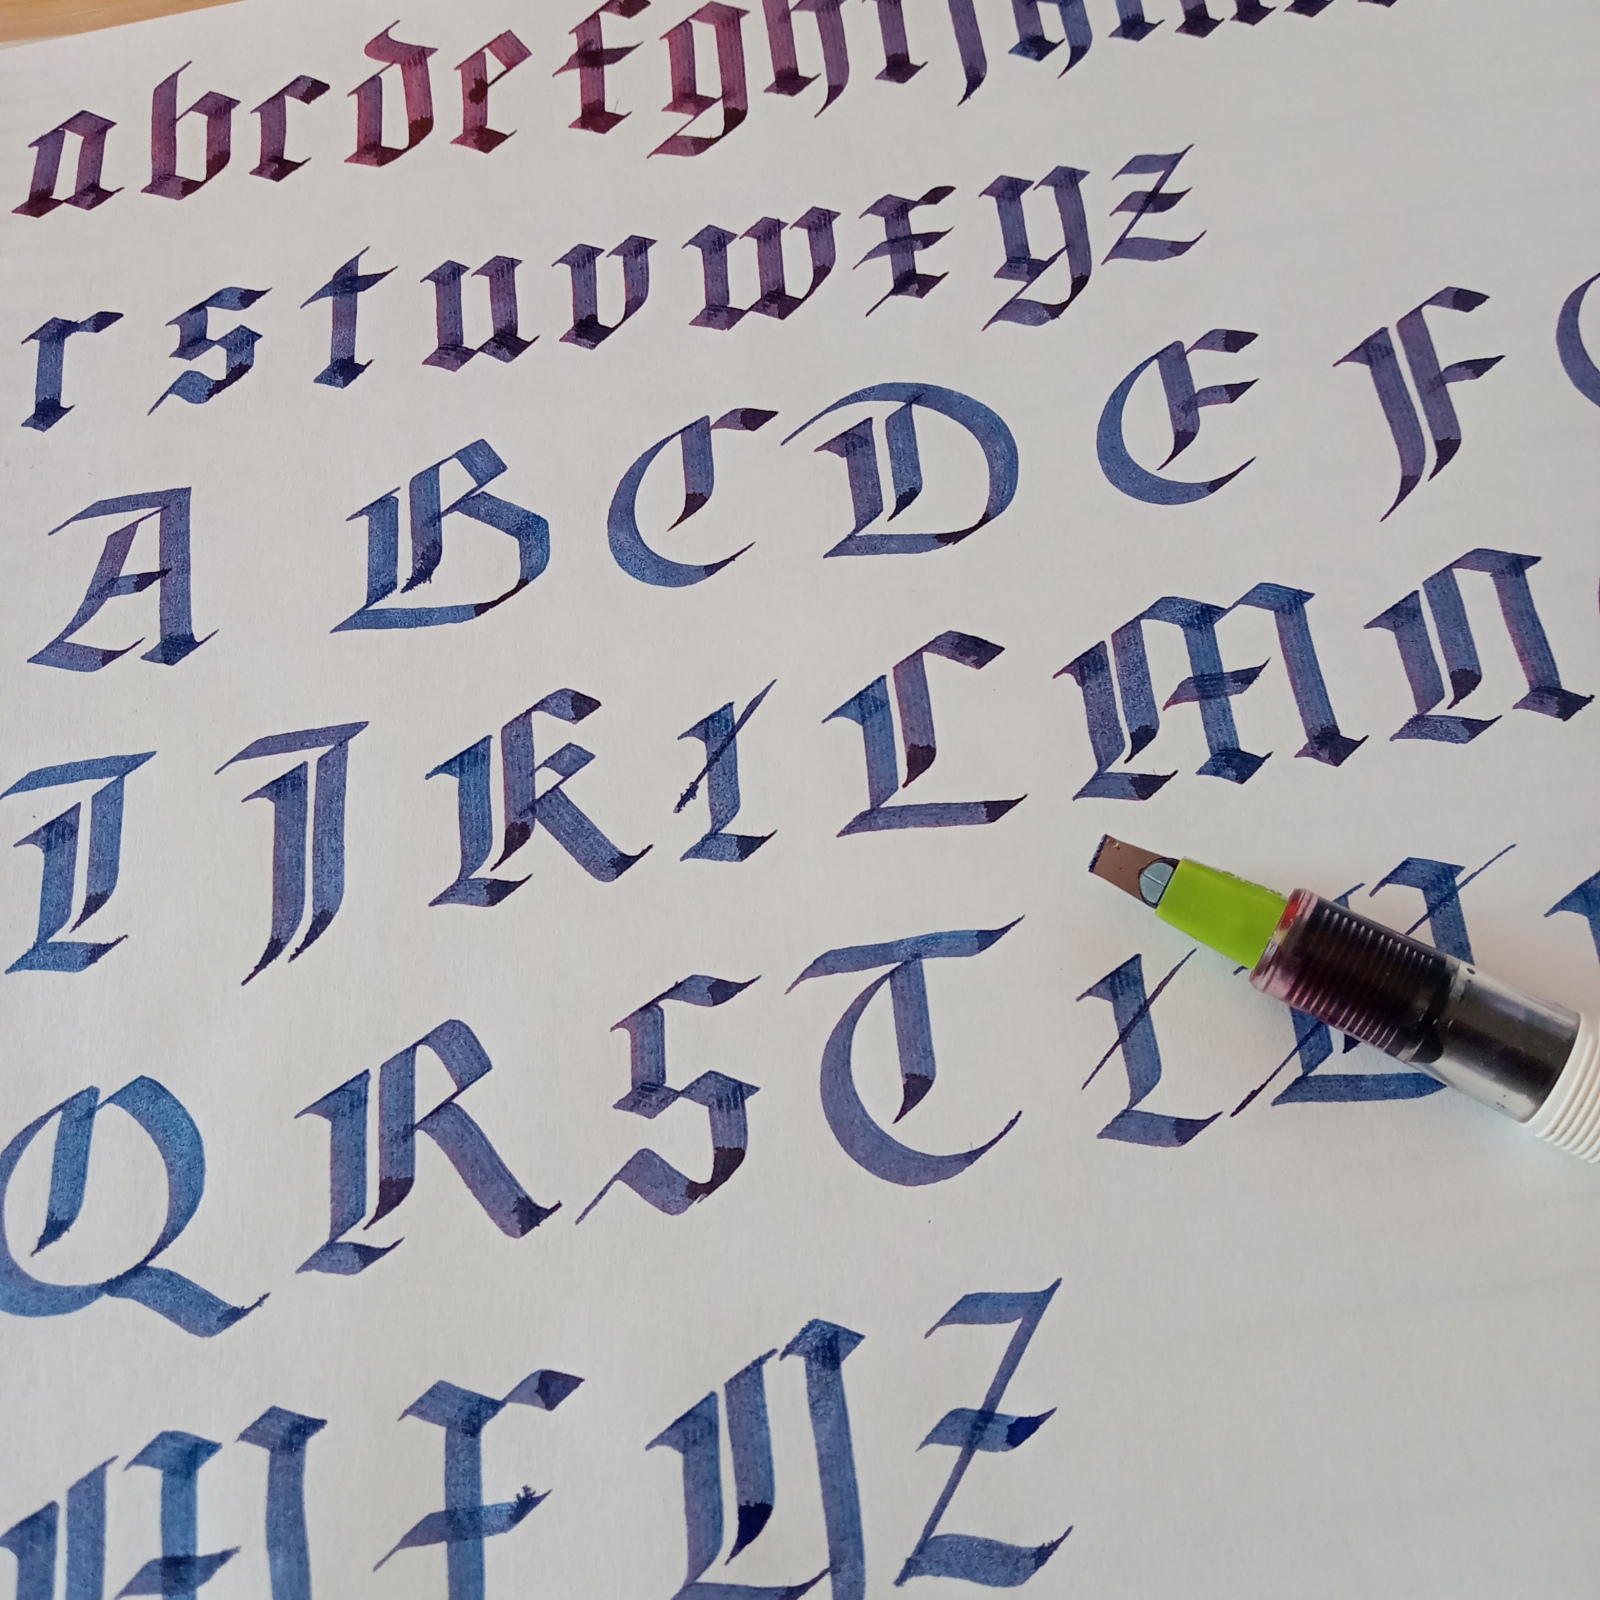 a b c d e f g h i j k l
r s t u v w x y z
A B C D E F
I J K L M N
Q R S T
W X Y Z